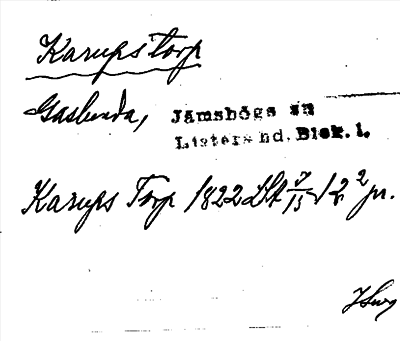 Karups Torp
Gaslunda, Jämshögs sn
Listers hd. Blek. l.
Karups Torp 1822 2 jr.